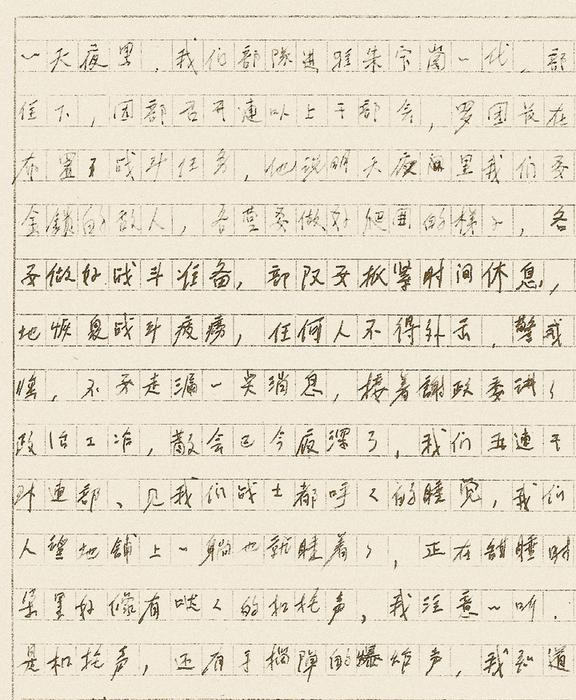 一天夜里，我们部隊进驻朱家崗一代，部
住下，团部召开連以上干部会，罗团长在
布置了战斗任务，他说明天夜间里我们要
金鎖的敌人，各营要做好包围的样子，各
要做好战斗准备，部队要抓紧时间休息，
地恢复战斗疲痨，任何人不得外击，警戒
哨，不要走漏一点消息，接着謝政委讲了
政治工治，散会已今夜深了，我们五連干
时連部、见我们战士都呼く的睡觉，我们
人望地鋪上一躺也就睡着了，正在甜睡时
里好像有哒く的机抢声，我注意一听．
是机抢声，还有手榴弹的爆炸声，我知道